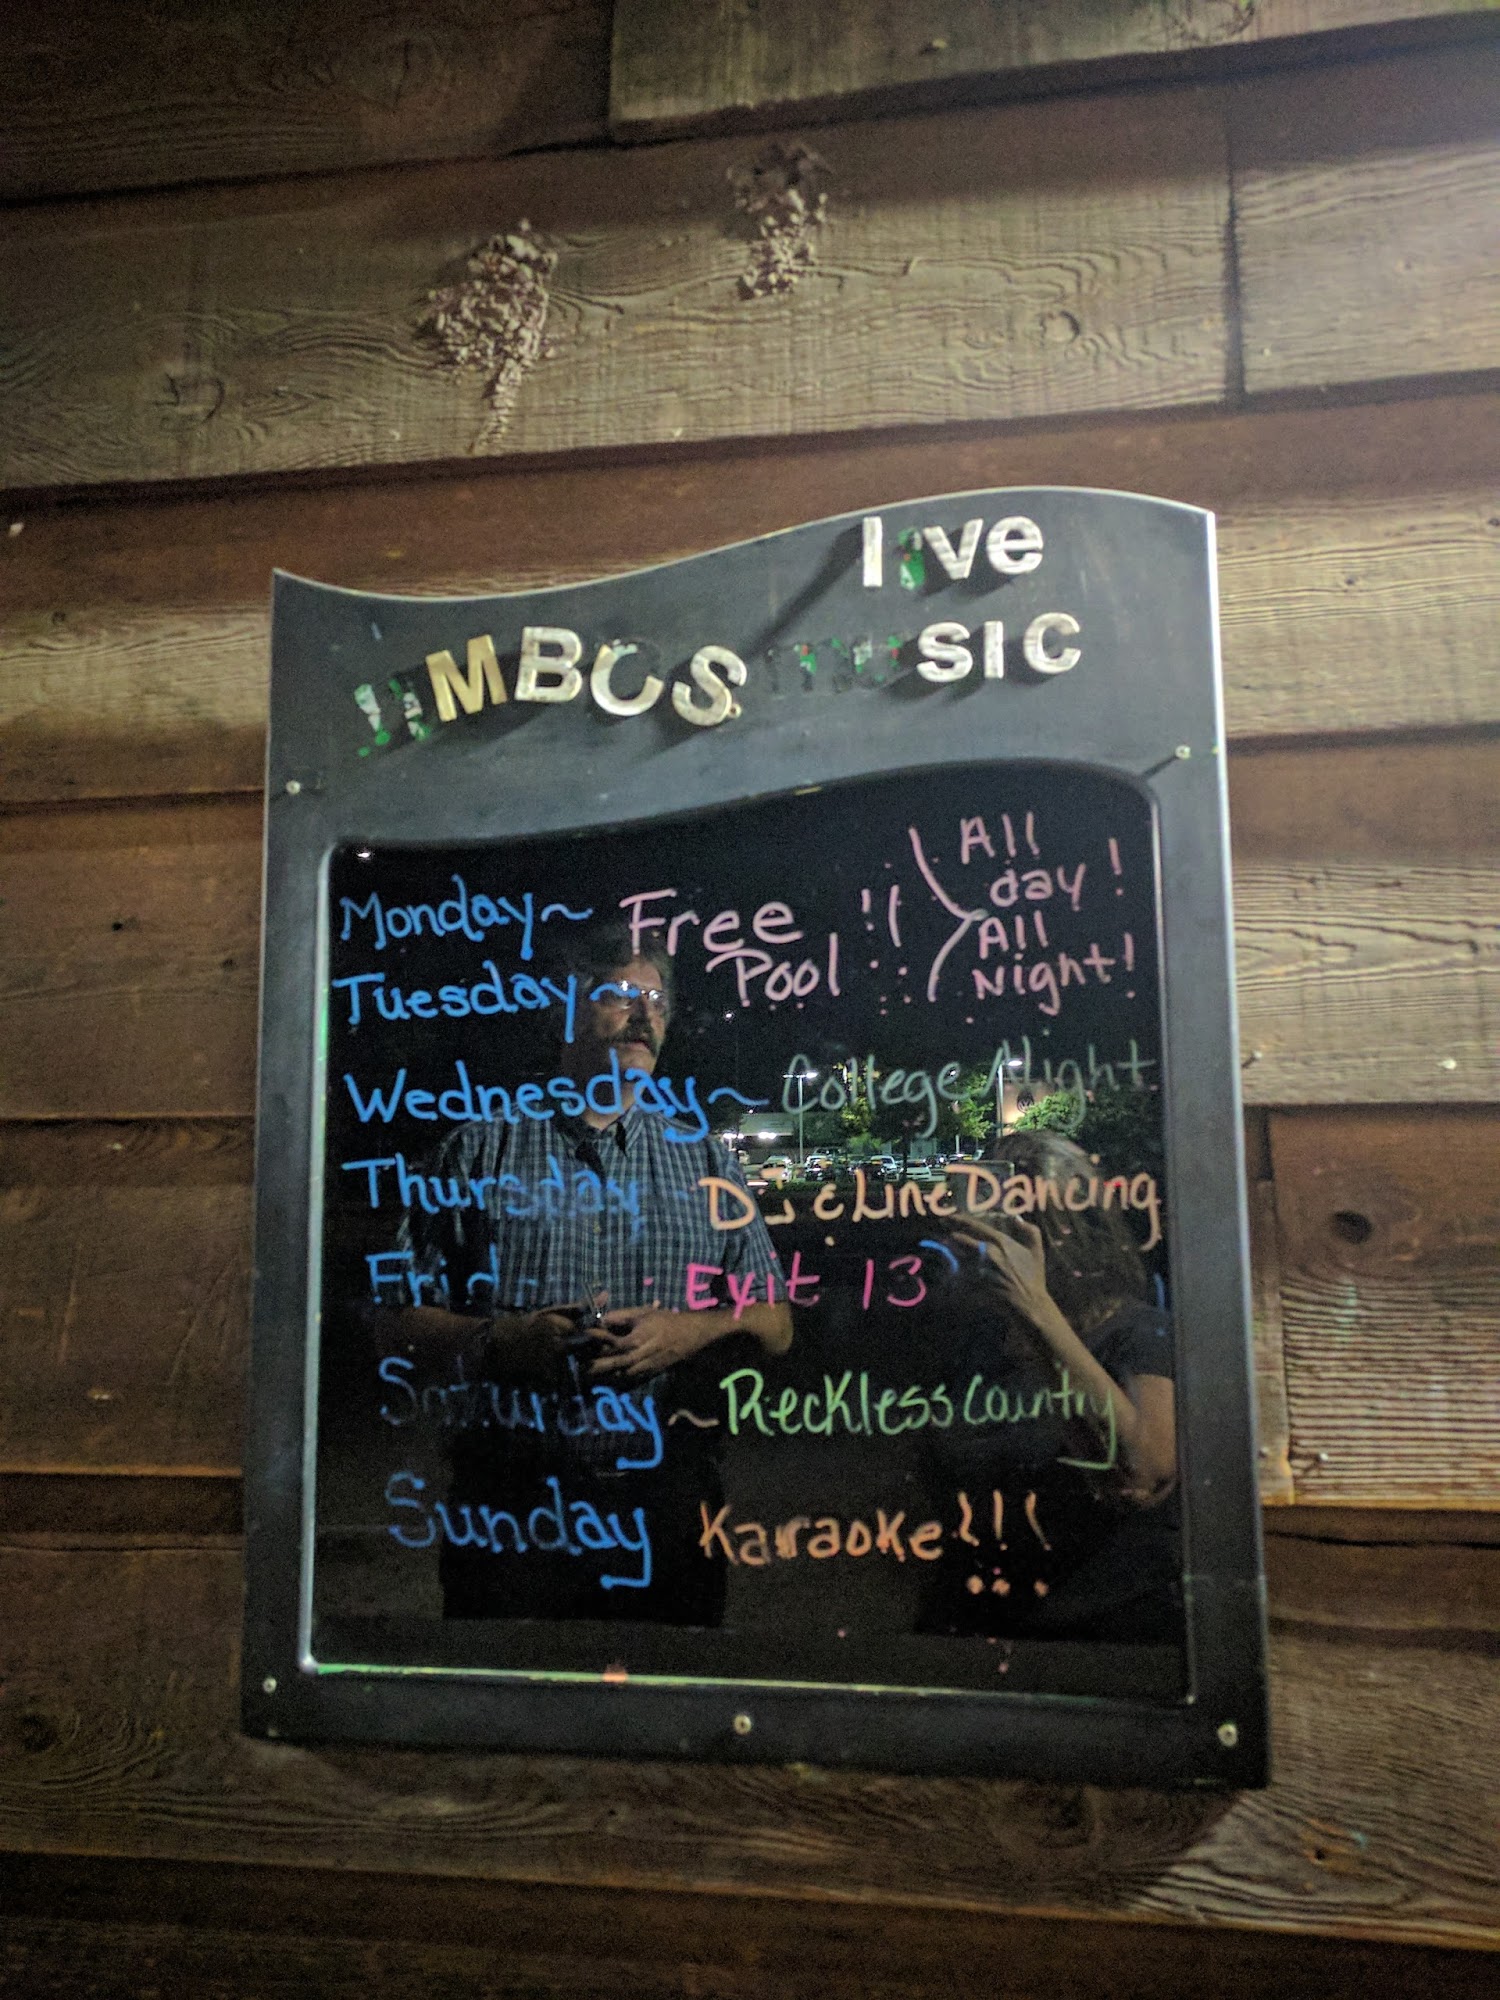 live
MBOS music
Monday~ Free Pool !! All day!
Tuesday~ All Night!
Wednesday~ College Night
Thursday DJ & Line Dancing
Frid Exit 13
Saturday~ Reckless Country
Sunday Karaoke!!!